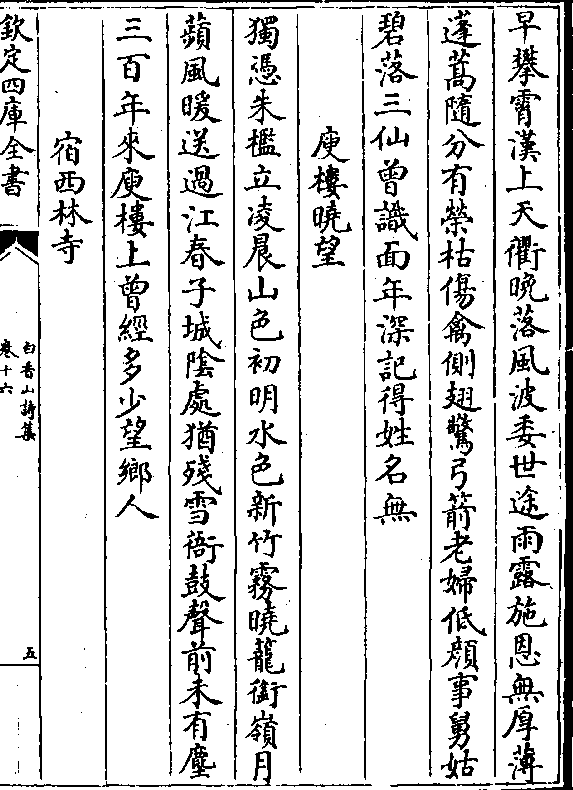 早攀霄漢上天衢晩落風波委世途雨露施恩無厚薄
蓬蒿隨分有榮枯傷禽側翅驚弓箭老婦低顔事舅姑
碧落三仙曾識面年深記得姓名無
庾樓曉望
獨憑朱檻立凌晨山色初明水色新竹霧曉籠銜嶺月
蘋風暖送過江春子城隂處猶殘雪衙鼓聲前未有塵
三百年來庾樓上曾經多少望鄉人
宿西林寺
欽定四庫全書
白香山詩集
卷十六
五